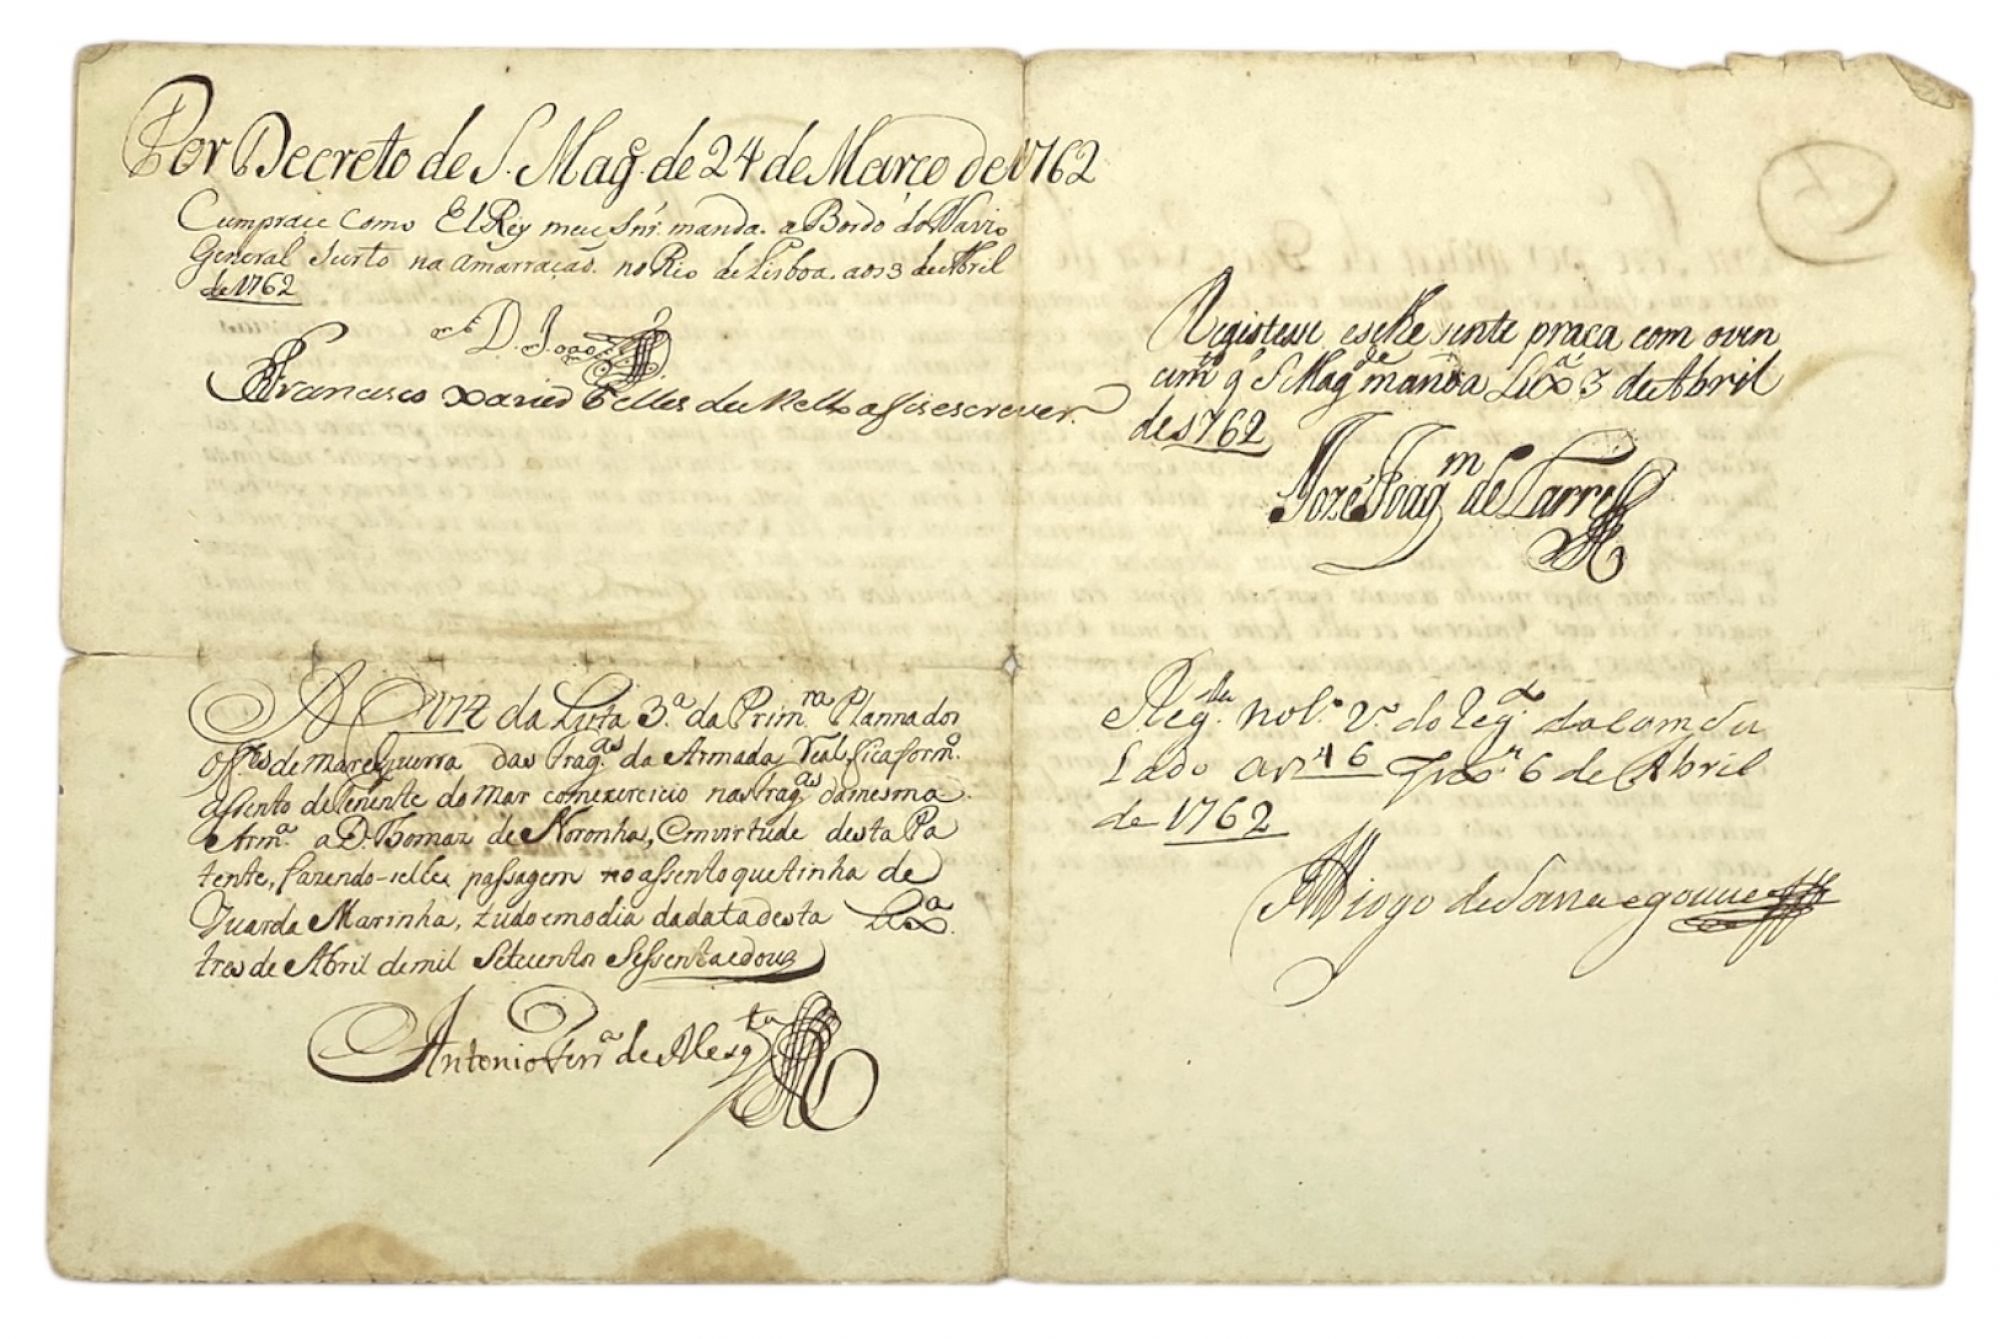 Por Decreto de S. Magᵉ. de 24 de Março de 1762
Cumprace como El Rey meu Snr. manda. a Bordo do Navio
General Surto na amarraçaõ. no Rio de Lisboa. aos 3 de Abril
de 1762
D. Joaõ
Francisco Xavier Telles de Mello afis escrever.
A 174 da Lista 3.ª da Prim.ʳᵃ Planna dos
Off.ᵉˢ de Mar e Guerra das Frag.ᵃˢ da Armada Real, fica form.º
assento de Tenente do Mar com exercicio nas Frag.ᵃˢ da mesma
Arm.ª a D. Thomaz de Noronha, em virtude desta Pa
tente, fazendo-selhe passagem no assento que tinha de
Guarda Marinha, tudo em o dia da data desta Lxª.
tres de Abril de mil Setecentos Sessenta e dous
Antonio Ferrª de Mesq.ᵗᵃ
Registese eselhe sente praça com o ven
cimᵗᵒ q̃ S Magᵈᵉ manda Lxª 3 de Abril
de 1762
Jozé Joaqᵐ de Larre
Reg.ᵈᵃ no L.º 2.º do Reg.º
Lado a 16 6 de Abril
de 1762
Diogo de